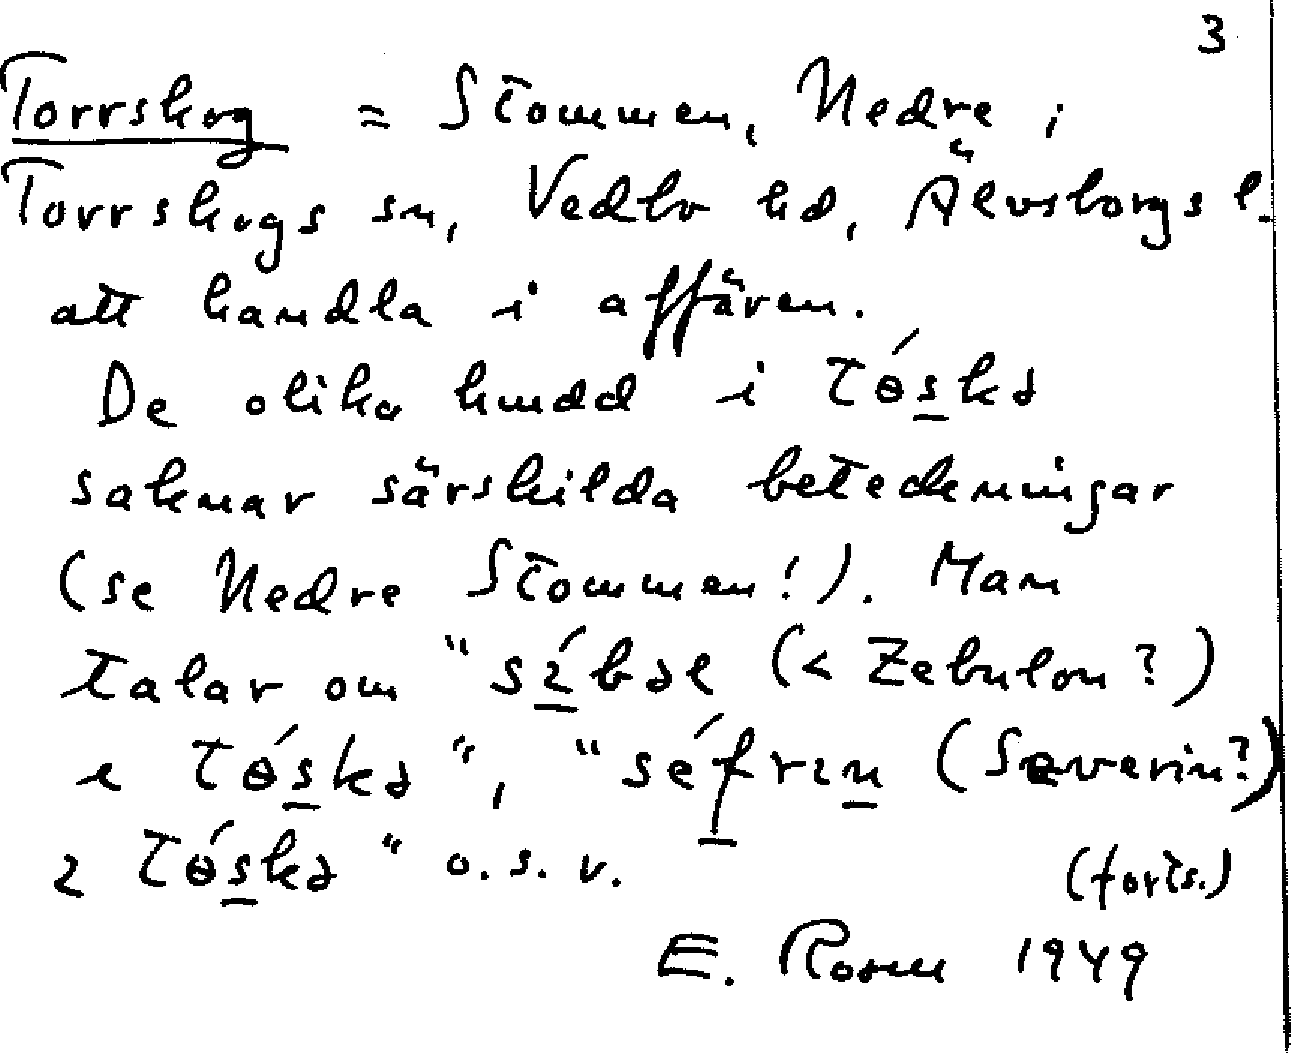 3
Torrskog = Stommen, Nedre i
Torrskogs sn, Vedbo hd, Älvsborgs l.
att handla i affären.
De olika hmdd i tɵ́skə
saknar särskilda beteckningar
(se Nedre Stommen!). Man
talar om "sɪ́bəl (< Zebulon?)
ɪ tɵ́skə", "séfrɪn (Severin?)
ɪ tɵ́skə" o.s.v.
(forts.)
E. Rosell 1949